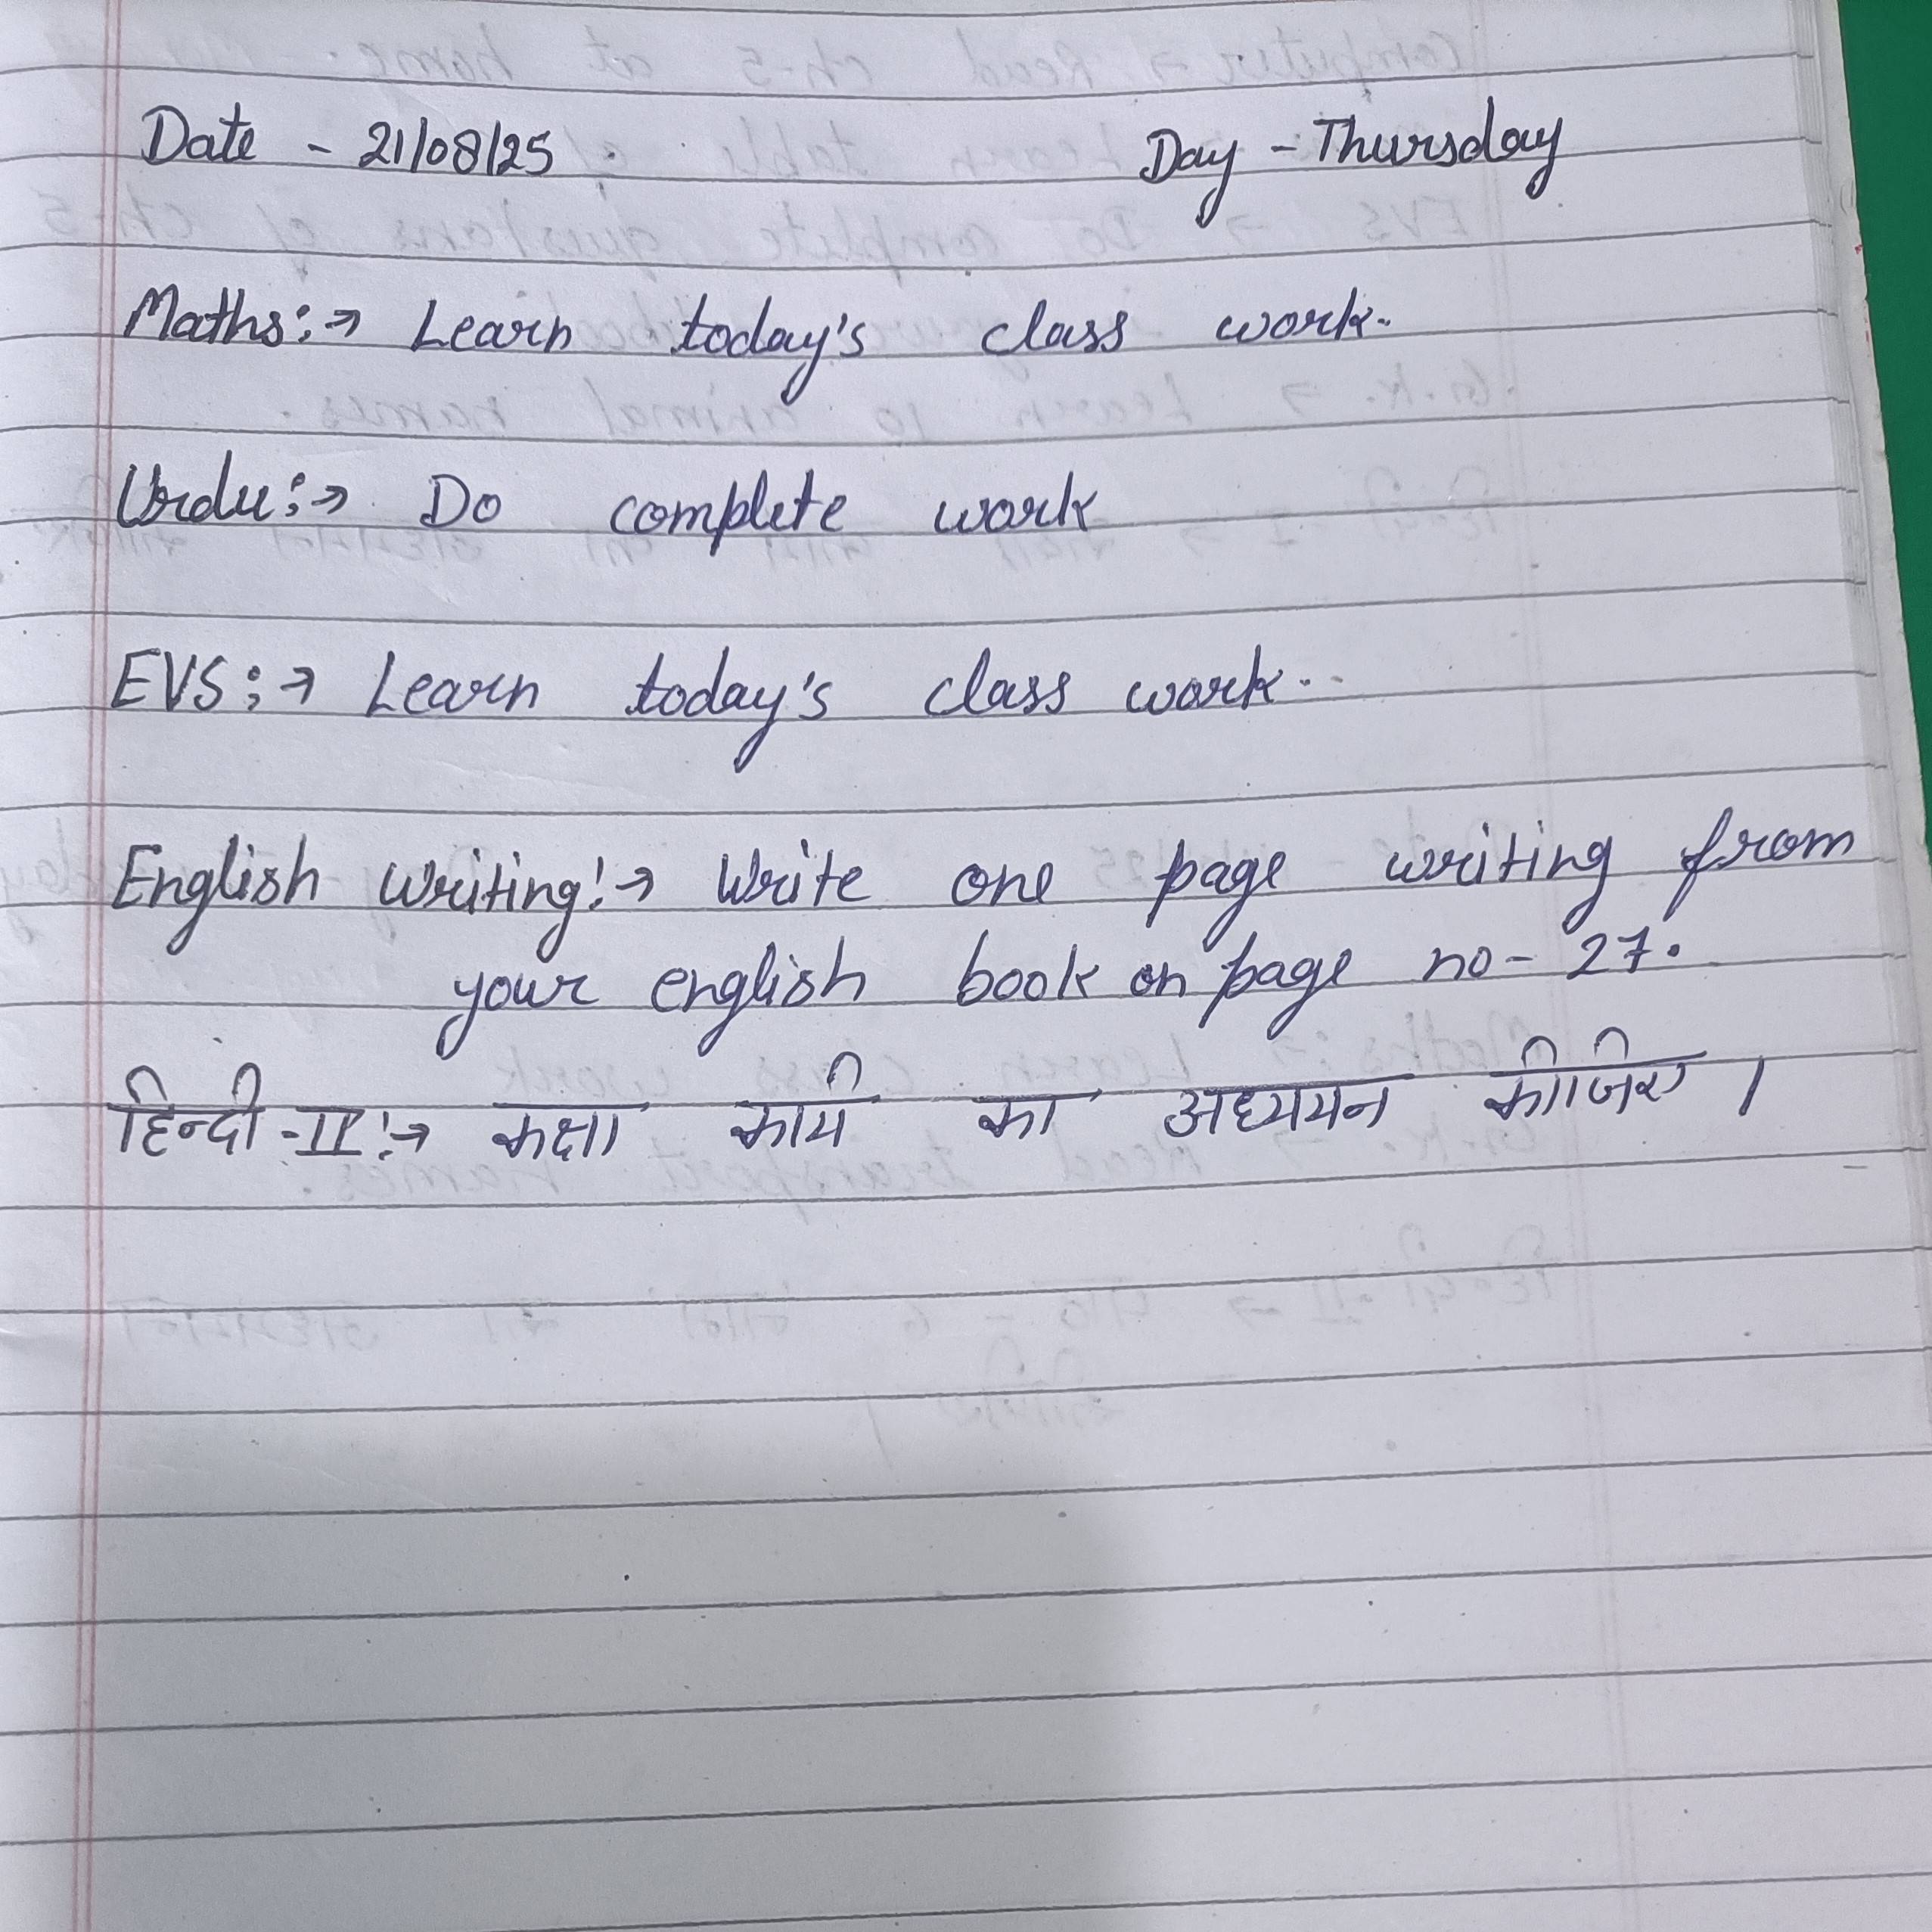 Date - 21/08/25 Day - Thursday
Maths:→ Learn today's class work.
Urdu:→ Do complete work
EVS:→ Learn today's class work..
English Writing:→ Write one page writing from
your english book on page no- 27.
हिन्दी -II:→ कक्षा कार्य का अध्ययन कीजिए ।